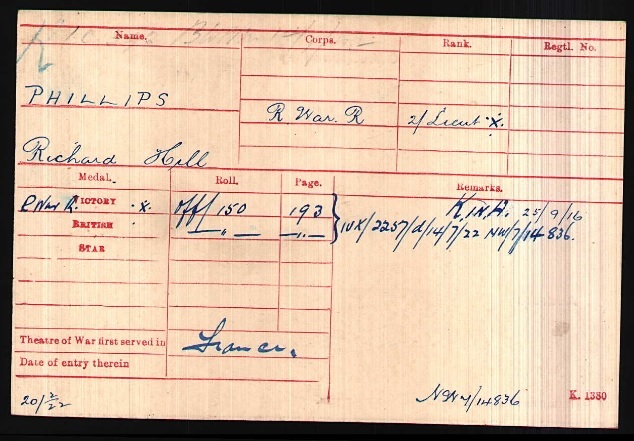 Name. Corps. Rank. Regtl. No.
PHILLIPS
R. War. R 2/Lieut. X.
Richard Hill
Medal. Roll. Page. Remarks.
VICTORY X. Off/150 193 K. in A. 25/9/16
BRITISH —„— —„— IVX/2257/d/14/7/22 NW/7/14836.
STAR
Theatre of War first served in France.
Date of entry therein
20/2/22 NW7/14836 K. 1380